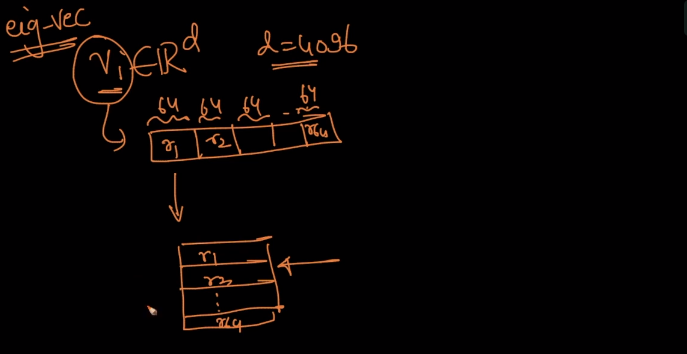 eig-vec
Vi ∈ ℝ^d d = 4096
64 64 64 - 64
r1 r2 r64
r1
r2
⋮
r64